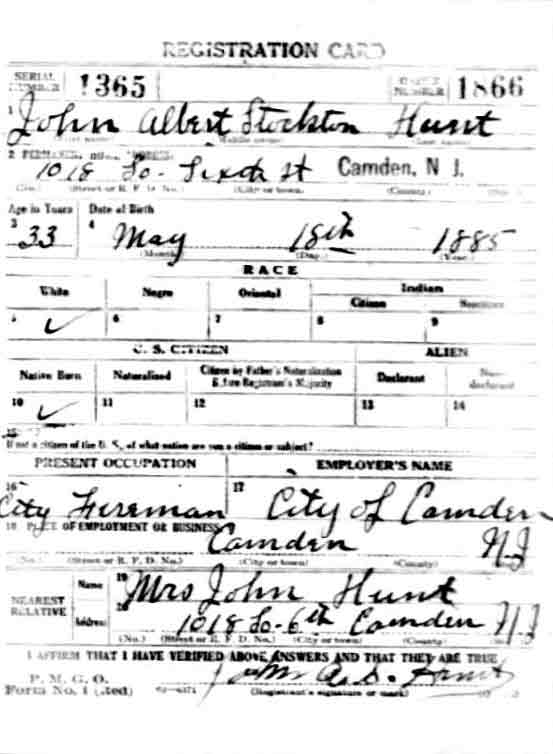 REGISTRATION CARD
SERIAL NUMBER 1365 ORDER NUMBER 1866
1 John Albert Stockton Hunt
(First name) (Middle name) (Last name)
2 PERMANENT HOME ADDRESS:
1018 So- Sixth st Camden, N J.
(No.) (Street or R. F. D. No.) (City or town) (County)
Age in Years Date of Birth
3 33 4 May 18th 1885
(Month.) (Day.) (Year.)
RACE
White Negro Oriental Indian
Citizen
5 ✓ 6 7 8 9
U. S. CITIZEN ALIEN
Native Born Naturalized Citizen by Father's Naturalization Before Registrant's Majority Declarant Non-declarant
10 ✓ 11 12 13 14
15
If not a citizen of the U. S., of what nation are you a citizen or subject?
PRESENT OCCUPATION EMPLOYER'S NAME
16 City Fireman 17 City of Camden
18 PLACE OF EMPLOYMENT OR BUSINESS
Camden NJ
(No.) (Street or R. F. D. No.) (City or town) (County)
NEAREST RELATIVE Name 19 Mrs John Hunt
Address 20 1018 So-6th Camden NJ
(No.) (Street or R. F. D. No.) (City or town) (County)
I AFFIRM THAT I HAVE VERIFIED ABOVE ANSWERS AND THAT THEY ARE TRUE
P. M. G. O.
Form No. 1 John A. S. Hunt
(Registrant's signature or mark)